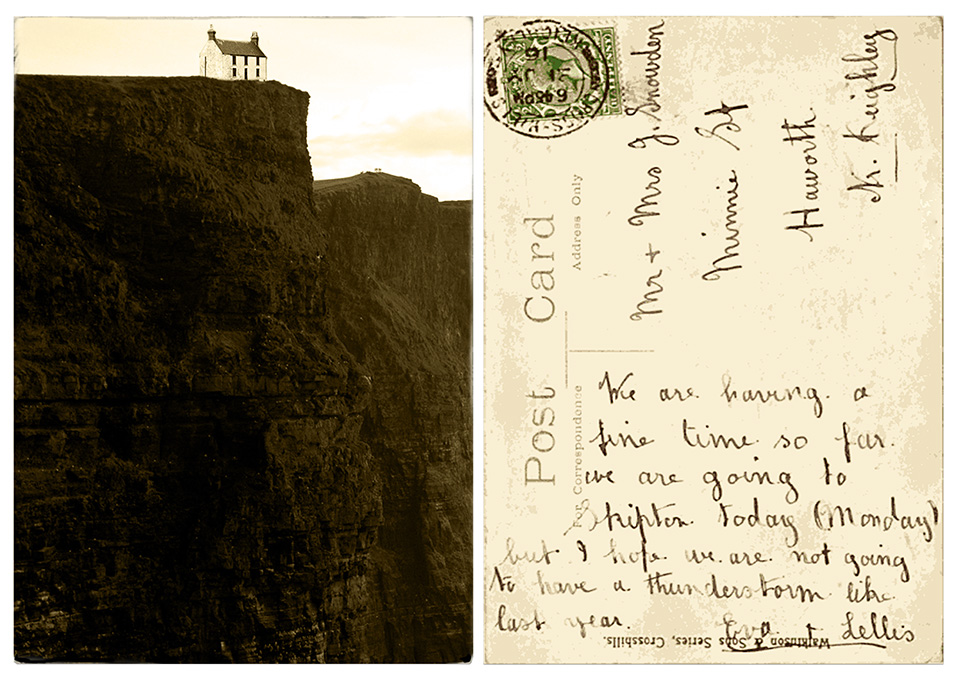 Post Card
For Correspondence
Address Only
Mr + Mrs J. Snowden
Minnie St
Haworth.
Nr. Keighley
We are having. a
fine time so far.
we are going to
Skipton. today (Monday)
but I hope we are. not going
to have a thunderstorm like.
last year.
Eva. + Lellis
Watkinson & Sons Series, Crosshills.